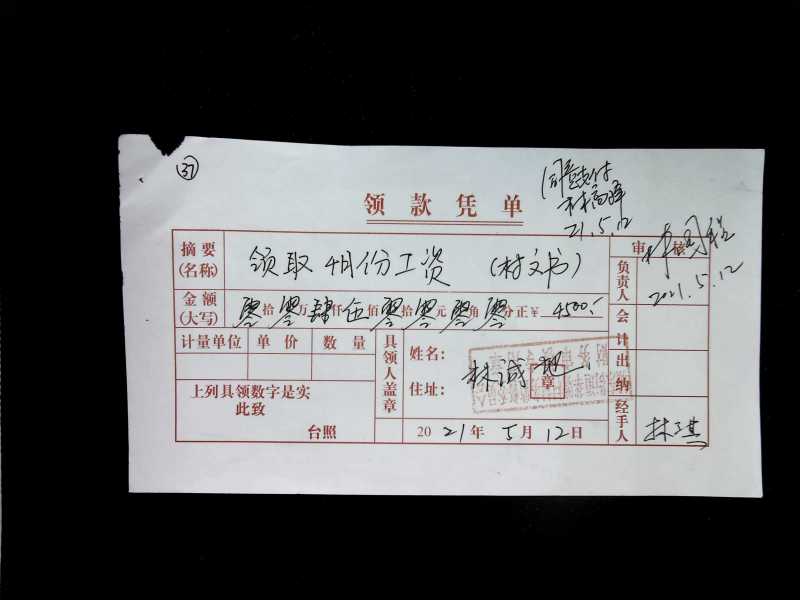 37
同意支付
21.5.12
领款凭单
摘要
(名称)
领取4月份工资 (村文书)
审核
2021.5.12
负责人
金额
(大写)
零拾零万肆仟伍佰零拾零元零角零分正¥ 4500.-
会计
计量单位 单价 数量
具领人盖章
姓名:
住址:
林诚
章
出纳
上列具领数字是实
此致
台照
2021年5月12日
经手人
林琪